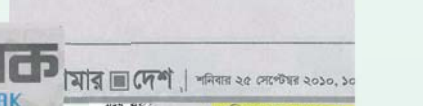 ক
মার দেশ | শনিবার ২৫ সেপ্টেম্বর ২০১০, ১০
AK